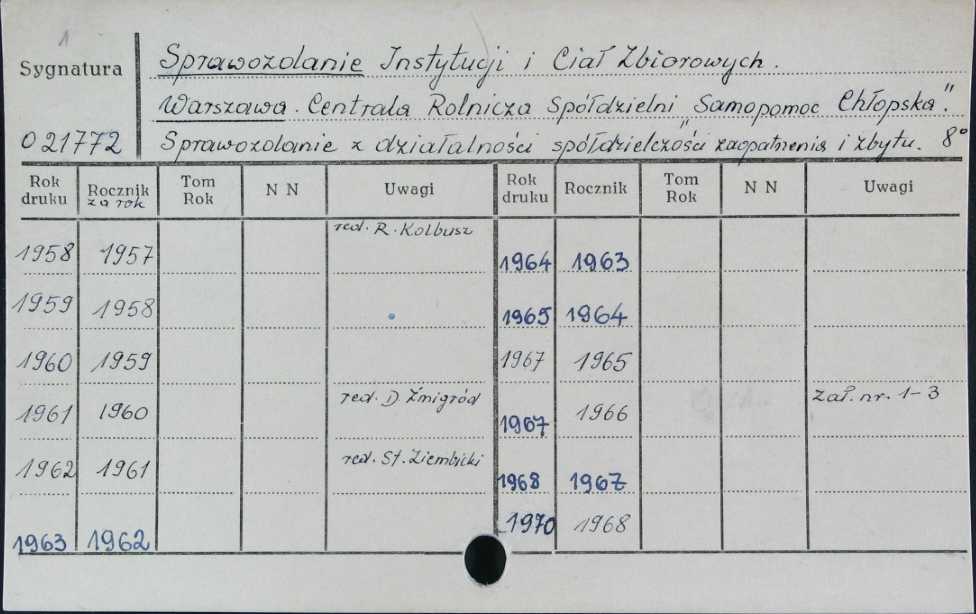 1
Sygnatura
Sprawozdanie Instytucji i Ciał Zbiorowych.
Warszawa. Centrala Rolnicza Spółdzielni "Samopomoc Chłopska".
O 21772 Sprawozdanie z działalności spółdzielczości zaopatrzenia i zbytu. 8°
Rok druku Rocznik za rok Tom Rok N N Uwagi Rok druku Rocznik Tom Rok N N Uwagi
1958 1957 red. R. Kolbusz 1964 1963
1959 1958 1965 1964
1960 1959 1967 1965
1961 1960 red. D Żmigród 1967 1966 Zał. nr. 1-3
1962 1961 red. St. Ziembicki 1968 1967
1963 1962 1970 1968